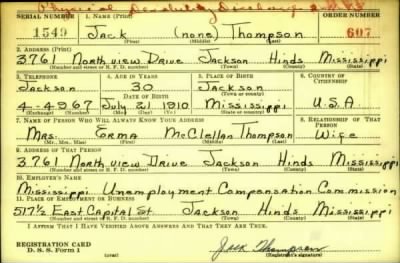 Physical Disability Discharge
SERIAL NUMBER 1. NAME (Print) ORDER NUMBER
1549 Jack (none) Thompson 607
(First) (Middle) (Last)
2. ADDRESS (Print)
3761 Northview Drive Jackson Hinds Mississippi
(Number and street or R. F. D. number) (Town) (County) (State)
3. TELEPHONE 4. AGE IN YEARS 5. PLACE OF BIRTH 6. COUNTRY OF CITIZENSHIP
Jackson 30 Jackson
DATE OF BIRTH (Town or county)
4-4967 July 21 1910 Mississippi U.S.A.
(Exchange) (Number) (Mo.) (Day) (Yr.) (State or country)
7. NAME OF PERSON WHO WILL ALWAYS KNOW YOUR ADDRESS 8. RELATIONSHIP OF THAT PERSON
Mrs. Erma McClellan Thompson Wife
(Mr., Mrs., Miss) (First) (Middle) (Last)
9. ADDRESS OF THAT PERSON
3761 Northview Drive Jackson Hinds Mississippi
(Number and street or R. F. D. number) (Town) (County) (State)
10. EMPLOYER'S NAME
Mississippi Unemployment Compensation Commission
11. PLACE OF EMPLOYMENT OR BUSINESS
517½ East Capital St. Jackson Hinds Mississippi
(Number and street or R. F. D. number) (Town) (County) (State)
I AFFIRM THAT I HAVE VERIFIED ABOVE ANSWERS AND THAT THEY ARE TRUE.
REGISTRATION CARD
D. S. S. Form 1
Jack Thompson
(Registrant's signature)